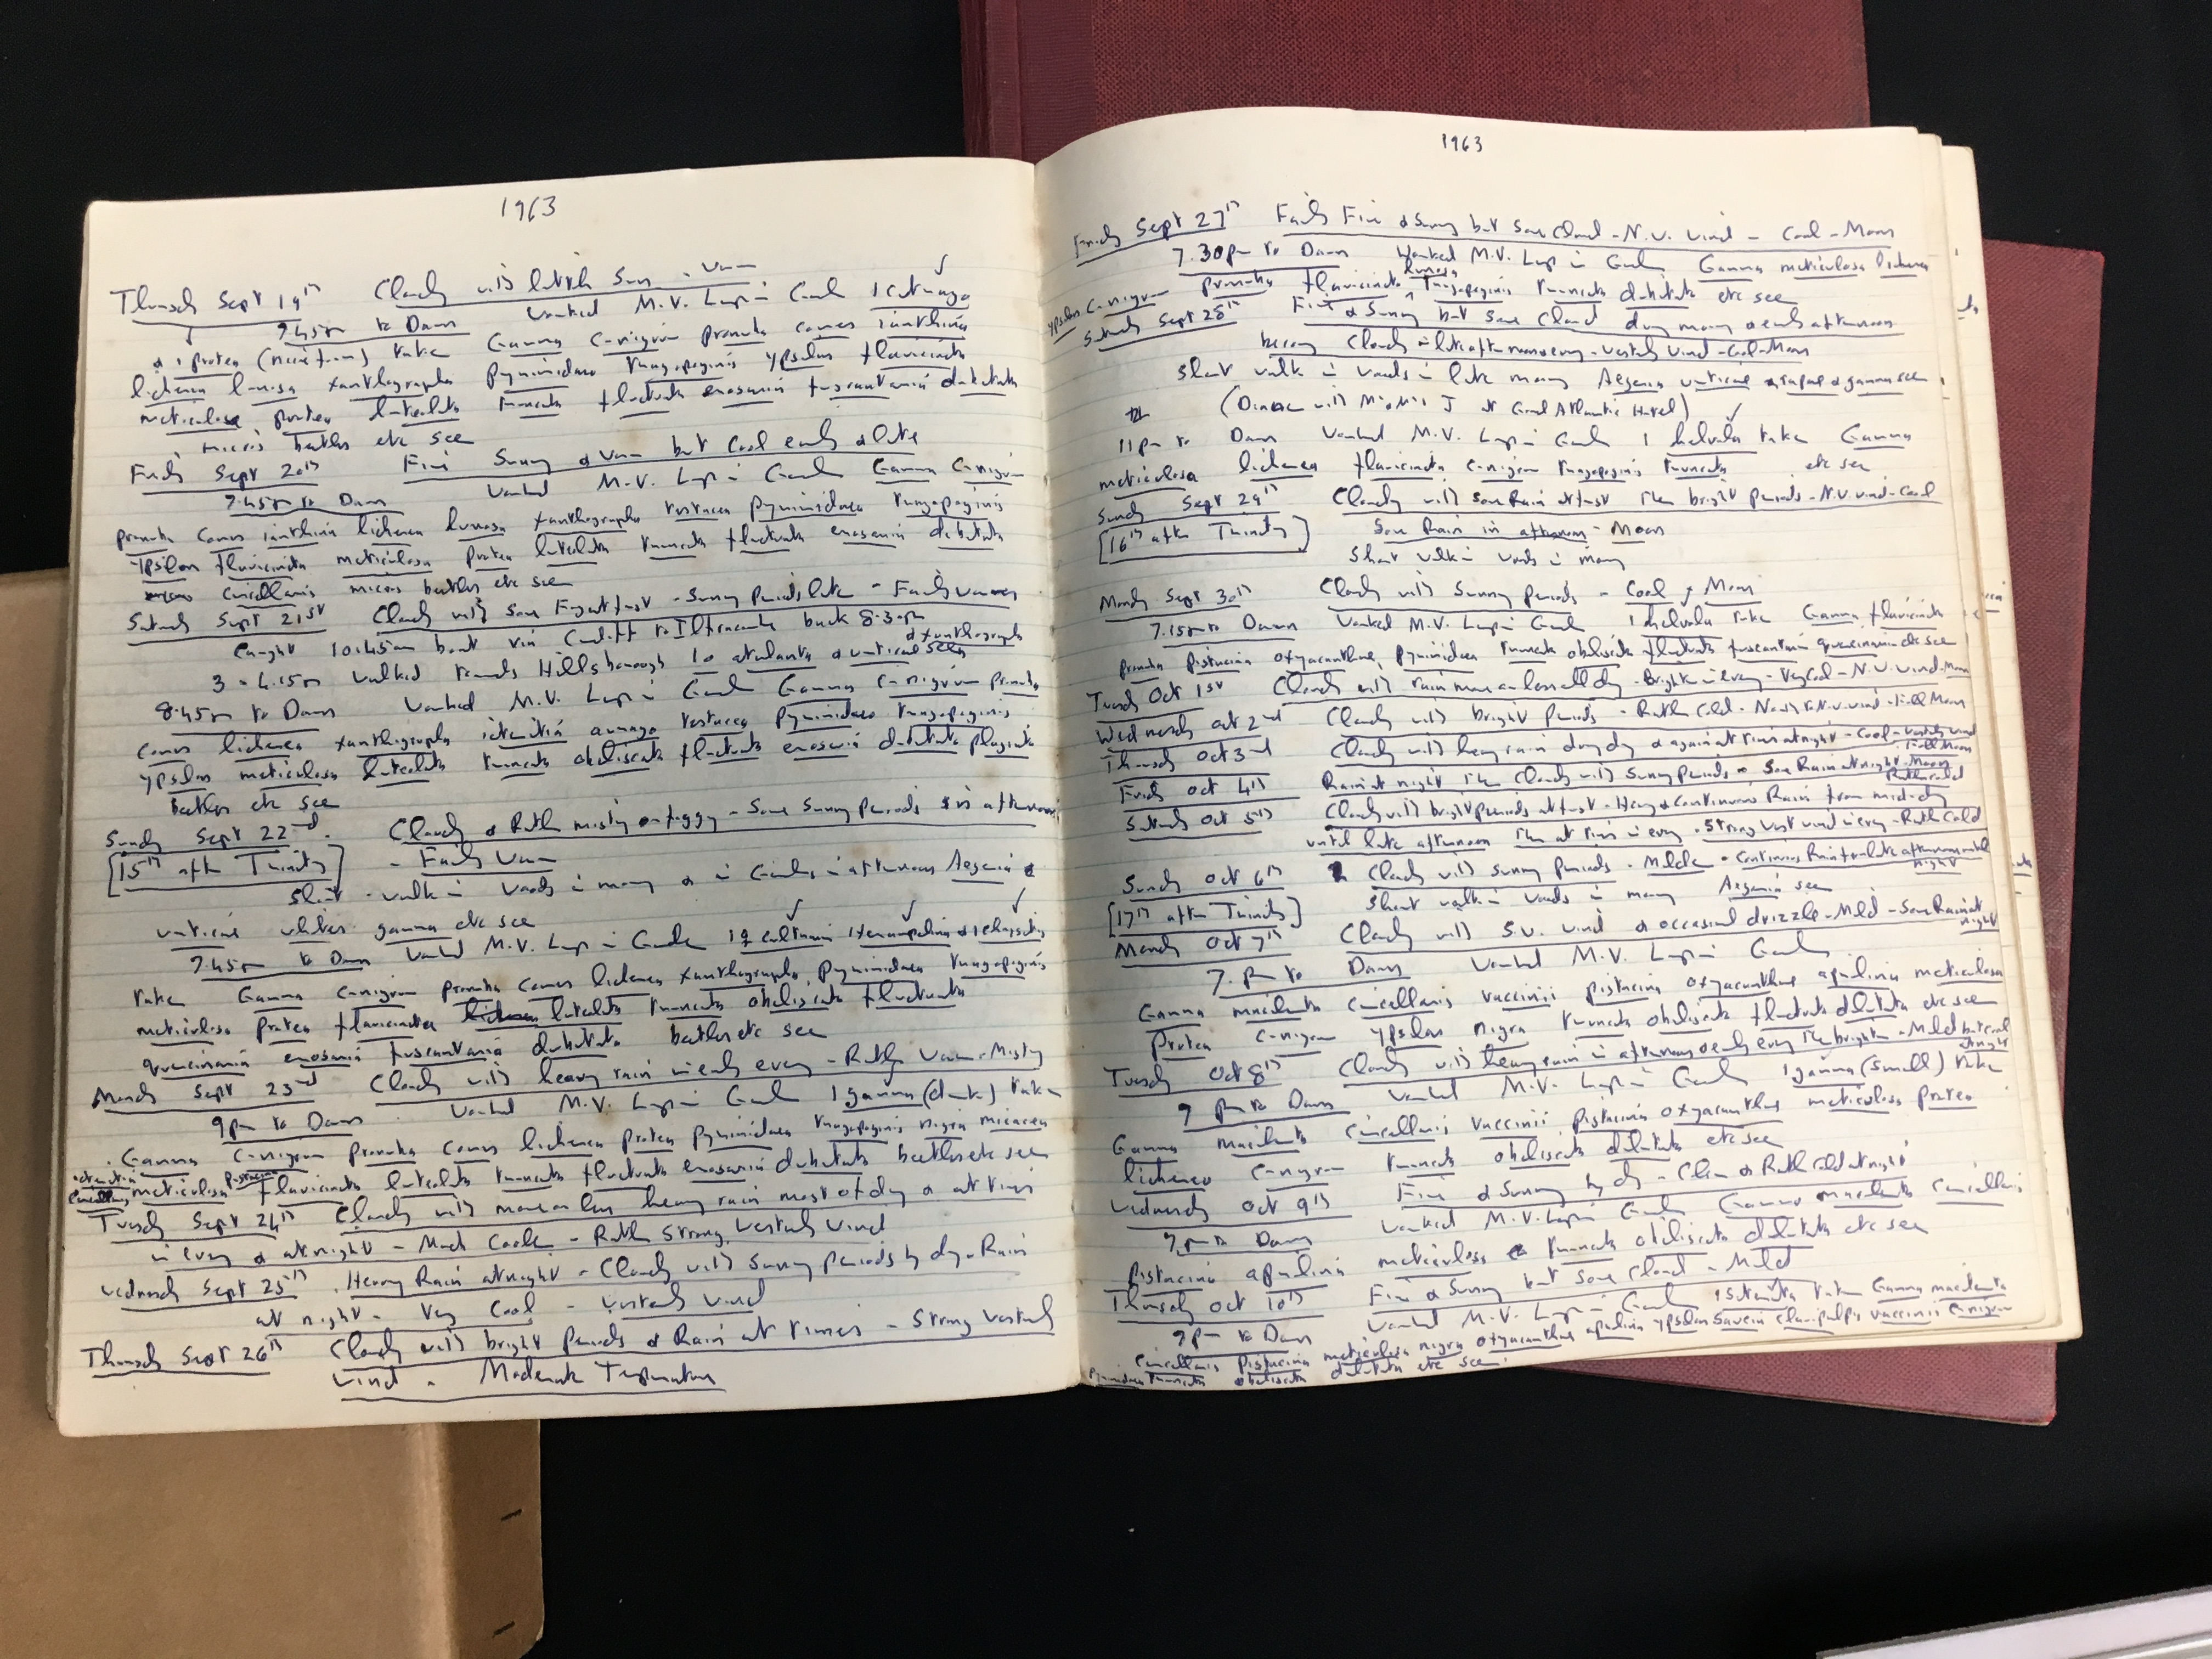 1963
Thursday Sept 19th Cloudy with little Sun - Warm
7.45pm to Dawn Worked M.V. Lamp in Garden 1
& 1 protea take Gamma C-nigrum pronuba comes ianthina
lichenea lunosa xanthographa pyramidea ypsilon flavicincta
meticulosa protea luteolata truncata fluctuata erosaria fuscantaria dubitata
micros beetles etc seen
Friday Sept 20th Fine Sunny & Warm but Cool early & late
7.45pm to Dawn Worked M.V. Lamp in Garden Gamma C-nigrum
pronuba comes ianthina lichenea lunosa xanthographa testacea pyramidea
ypsilon flavicincta meticulosa protea luteolata truncata fluctuata erosaria dubitata
micros beetles etc seen
Saturday Sept 21st Cloudy with some Fog at first - Sunny Periods later - Fairly Warm
Caught 10.45am boat via Cardiff to Ilfracombe back 8.30pm
3 - 4.15pm walked round Hillsborough 10 atalanta & urticae seen & xanthographa
8.45pm to Dawn Worked M.V. Lamp in Garden Gamma C-nigrum pronuba
comes lichenea xanthographa testacea pyramidea
ypsilon meticulosa luteolata truncata obeliscata fluctuata erosaria dubitata
beetles etc seen
Sunday Sept 22nd Cloudy & Rather misty or foggy - Some Sunny periods in afternoon
[15th after Trinity] - Fairly Warm
Short walk in woods in morning & in Garden in afternoon Aegeria &
urticae gamma etc seen
7.45pm to Dawn Worked M.V. Lamp in Garden 1
take Gamma C-nigrum pronuba comes lichenea xanthographa pyramidea
meticulosa protea flavicincta luteolata truncata obeliscata fluctuata
erosaria fuscantaria dubitata beetles etc seen
Monday Sept 23rd Cloudy with heavy rain in early evening - Rather Warm - Misty
9pm to Dawn Worked M.V. Lamp in Garden 1 gamma (dark) take
Gamma C-nigrum pronuba comes lichenea protea pyramidea nigra micacea
meticulosa flavicincta luteolata truncata fluctuata erosaria dubitata beetles etc seen
Tuesday Sept 24th Cloudy with more or less heavy rain most of day & at times
in evening & at night - Much Cooler - Rather Strong Westerly Wind
Wednesday Sept 25th Heavy Rain at night - Cloudy with Sunny periods by day - Rain
at night - Very Cool - Westerly Wind
Thursday Sept 26th Cloudy with bright Periods & Rain at times - Strong Westerly
Wind - Moderate Temperature
1963
Friday Sept 27th Fairly Fine & Sunny but some Cloud - N.W. Wind - Cool - Moon
7.30pm to Dawn Worked M.V. Lamp in Garden Gamma meticulosa lichenea
ypsilon C-nigrum pronuba flavicincta lunosa truncata dubitata etc seen
Saturday Sept 28th Fine & Sunny but some Cloud during morning & early afternoon
becoming Cloudy in late afternoon & evening - Westerly Wind - Cool - Moon
Short walk in woods in late morning Aegeria urticae & rapae & gamma seen
(Dinner with at Grand Atlantic Hotel)
11pm to Dawn Worked M.V. Lamp in Garden 1 helvola take Gamma
meticulosa lichenea flavicincta C-nigrum truncata etc seen
Sunday Sept 29th Cloudy with some Rain at first then bright periods - N.W. Wind - Cool
[16th after Trinity] Some Rain in afternoon - Moon
Short walk in woods in morning
Monday Sept 30th Cloudy with Sunny periods - Cool - Moon
7.15pm to Dawn Worked M.V. Lamp in Garden 1 helvola take Gamma flavicincta
pronuba pistacina oxyacanthae pyramidea truncata obeliscata fluctuata fuscantaria etc seen
Tuesday Oct 1st Cloudy with rain more or less all day - Brighter in evening - Very Cool - N.W. Wind - Moon
Wednesday Oct 2nd Cloudy with bright Periods - Rather Cold - North to N.W. Wind - Full Moon
Thursday Oct 3rd Cloudy with heavy rain during day & again at times at night - Cool - Westerly Wind
Full Moon
Friday Oct 4th Rain at night then Cloudy with Sunny Periods - Some Rain at night - Moon
Rather cold
Saturday Oct 5th Cloudy with bright periods at first - Heavy & Continuous Rain from mid-day
until late afternoon then at times in evening - Strong West wind in evening - Rather Cold
Sunday Oct 6th Cloudy with Sunny periods - Milder - Continuous Rain from late afternoon until
night
[17th after Trinity] Short walk in woods in morning Aegeria seen
Monday Oct 7th Cloudy with S.W. Wind & occasional drizzle - Mild - Some Rain at
night
7.pm to Dawn Worked M.V. Lamp in Garden
Gamma macilenta circellaris vaccinii pistacina oxyacanthae aprilina meticulosa
Protea C-nigrum ypsilon nigra truncata obeliscata fluctuata dilutata etc seen
Tuesday Oct 8th Cloudy with heavy rain in afternoon & early evening then brighter - Mild but cool
at night
9 pm to Dawn Worked M.V. Lamp in Garden 1 gamma (small) take
Gamma macilenta circellaris vaccinii pistacina oxyacanthae meticulosa protea
lichenea C-nigrum truncata obeliscata dilutata etc seen
Wednesday Oct 9th Fine & Sunny by day - Clear & Rather Cold at night
7pm to Dawn Worked M.V. Lamp in Garden Gamma macilenta circellaris
pistacina aprilina meticulosa truncata obeliscata dilutata etc seen
Thursday Oct 10th Fine & Sunny but some Cloud - Mild
7pm to Dawn Worked M.V. Lamp in Garden 1 take Gamma macilenta
circellaris pistacina meticulosa nigra oxyacanthae aprilina ypsilon vaccinii C-nigrum
pyramidea truncata obeliscata dilutata etc seen